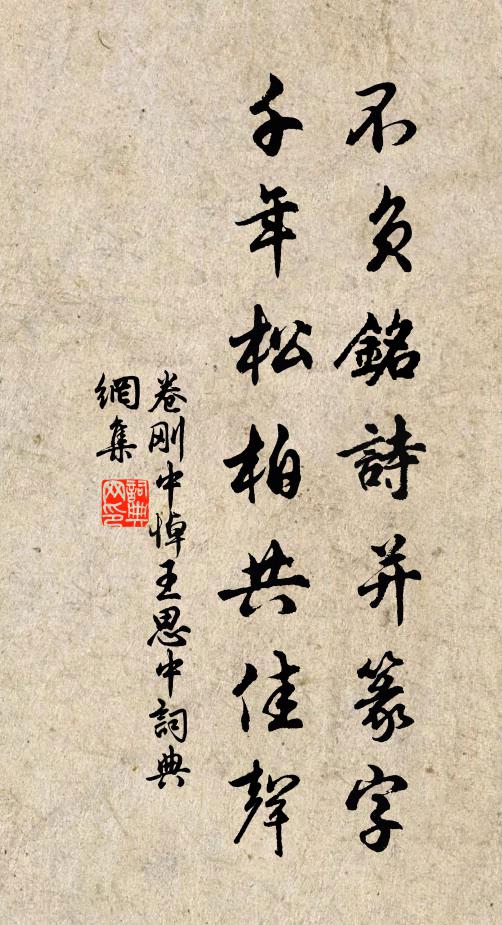 不負銘詩并篆字
千年松柏共佳聲
卷剛中悼王思中詞典
網集
詞典
网印